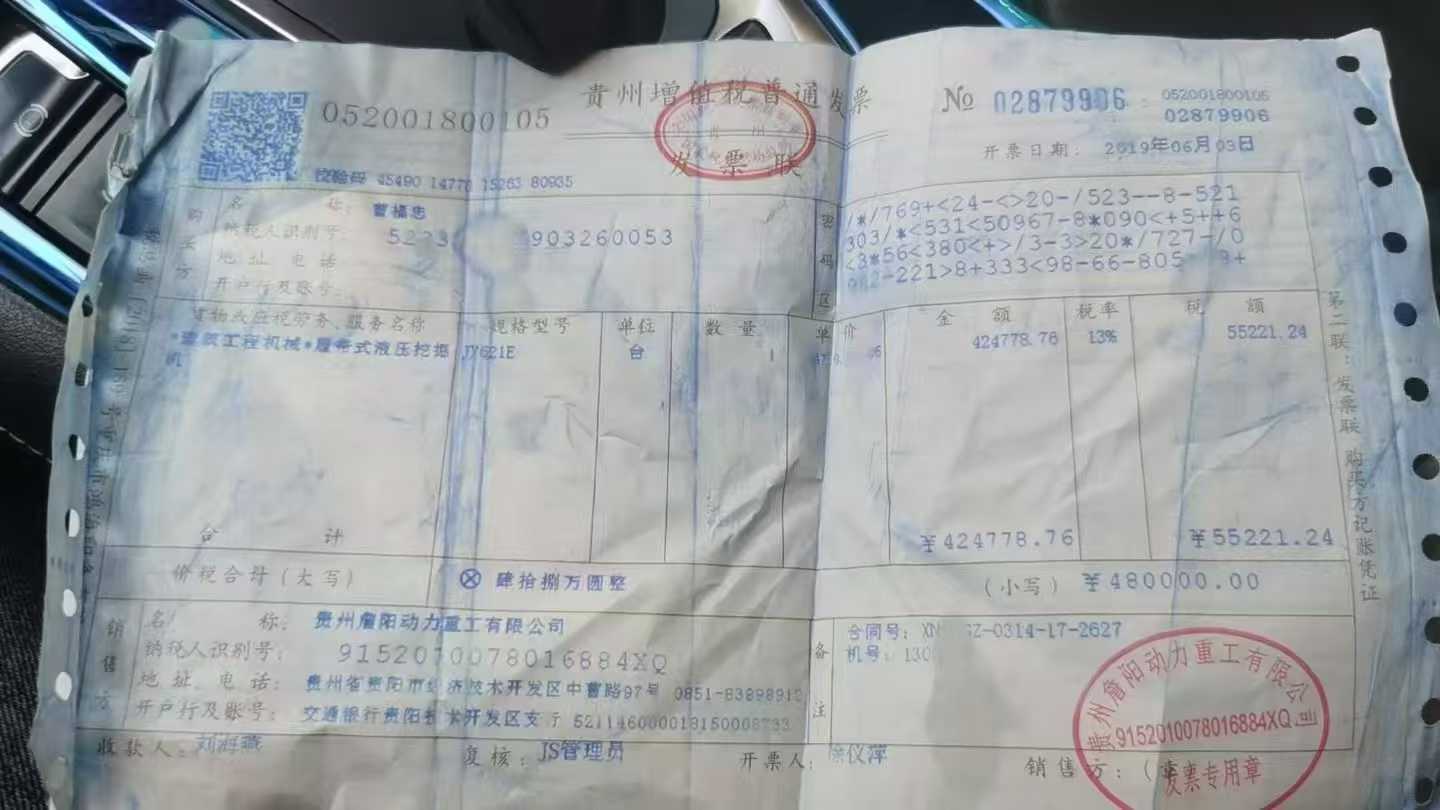 贵州增值税普通发票
发票联
052001800105
№ 02879906
052001800105
02879906
校验码 45490 14778 15263 80935
开票日期： 2019年06月03日
购买方
名称：
纳税人识别号： 903260053
地址、电话
开户行及账号：
密码区
/*/769+<24-<>20-/523--8-521
303/*<531<50967-8*090<+5++6
<3*56<380<+>/3-3>20*/727-/0
-221>8+333<98-66-805
货物或应税劳务、服务名称 规格型号 单位 数量 单价 金额 税率 税额
*建筑工程机械*履带式液压挖掘机 JY621E 台 1 424778.76 13% 55221.24
合计 ￥424778.76 ￥55221.24
价税合计（大写） ⊗ 肆拾捌万圆整 （小写） ￥480000.00
销售方
名称： 贵州詹阳动力重工有限公司
纳税人识别号： 9152010078016884XQ
地址、电话： 贵州省贵阳市经济技术开发区中曹路97号 0851-83898912
开户行及账号： 交通银行贵阳技术开发区支行 521146000018150008733
备注
合同号： -0314-17-2627
机号：130
收款人： 复核： JS管理员 开票人： 徐仪萍 销售方：（章）
第二联：发票联 购买方记账凭证
贵州詹阳动力重工有限公司
9152010078016884XQ
发票专用章